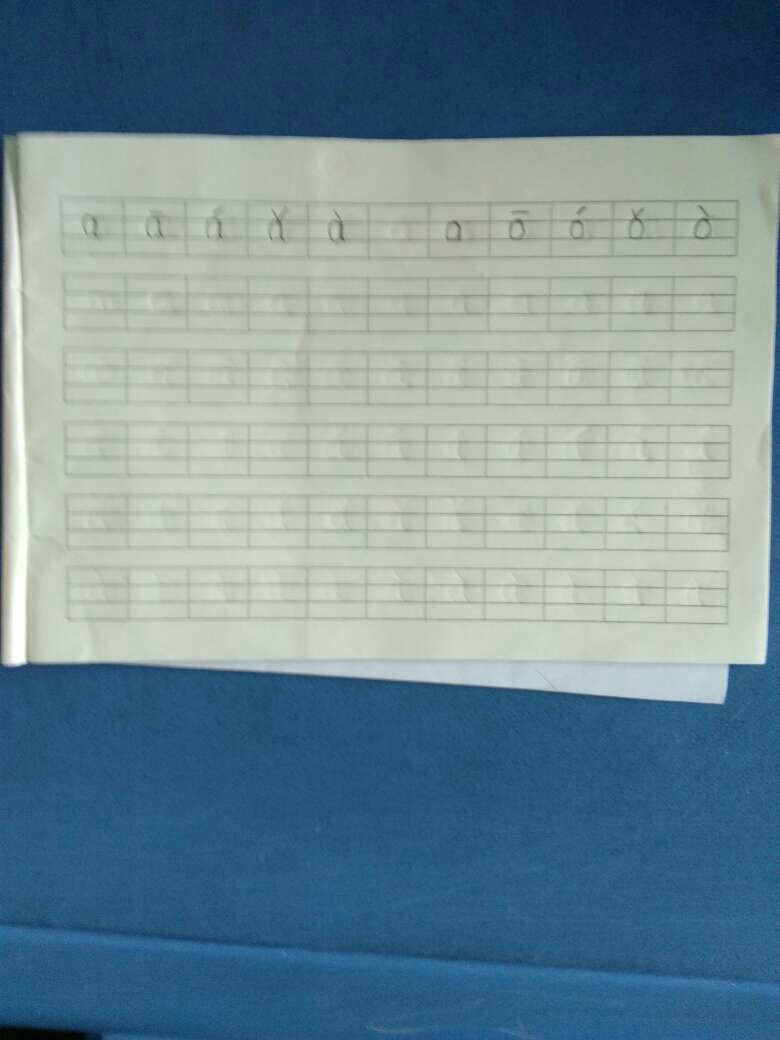 a ā á ǎ à o ō ó ǒ ò